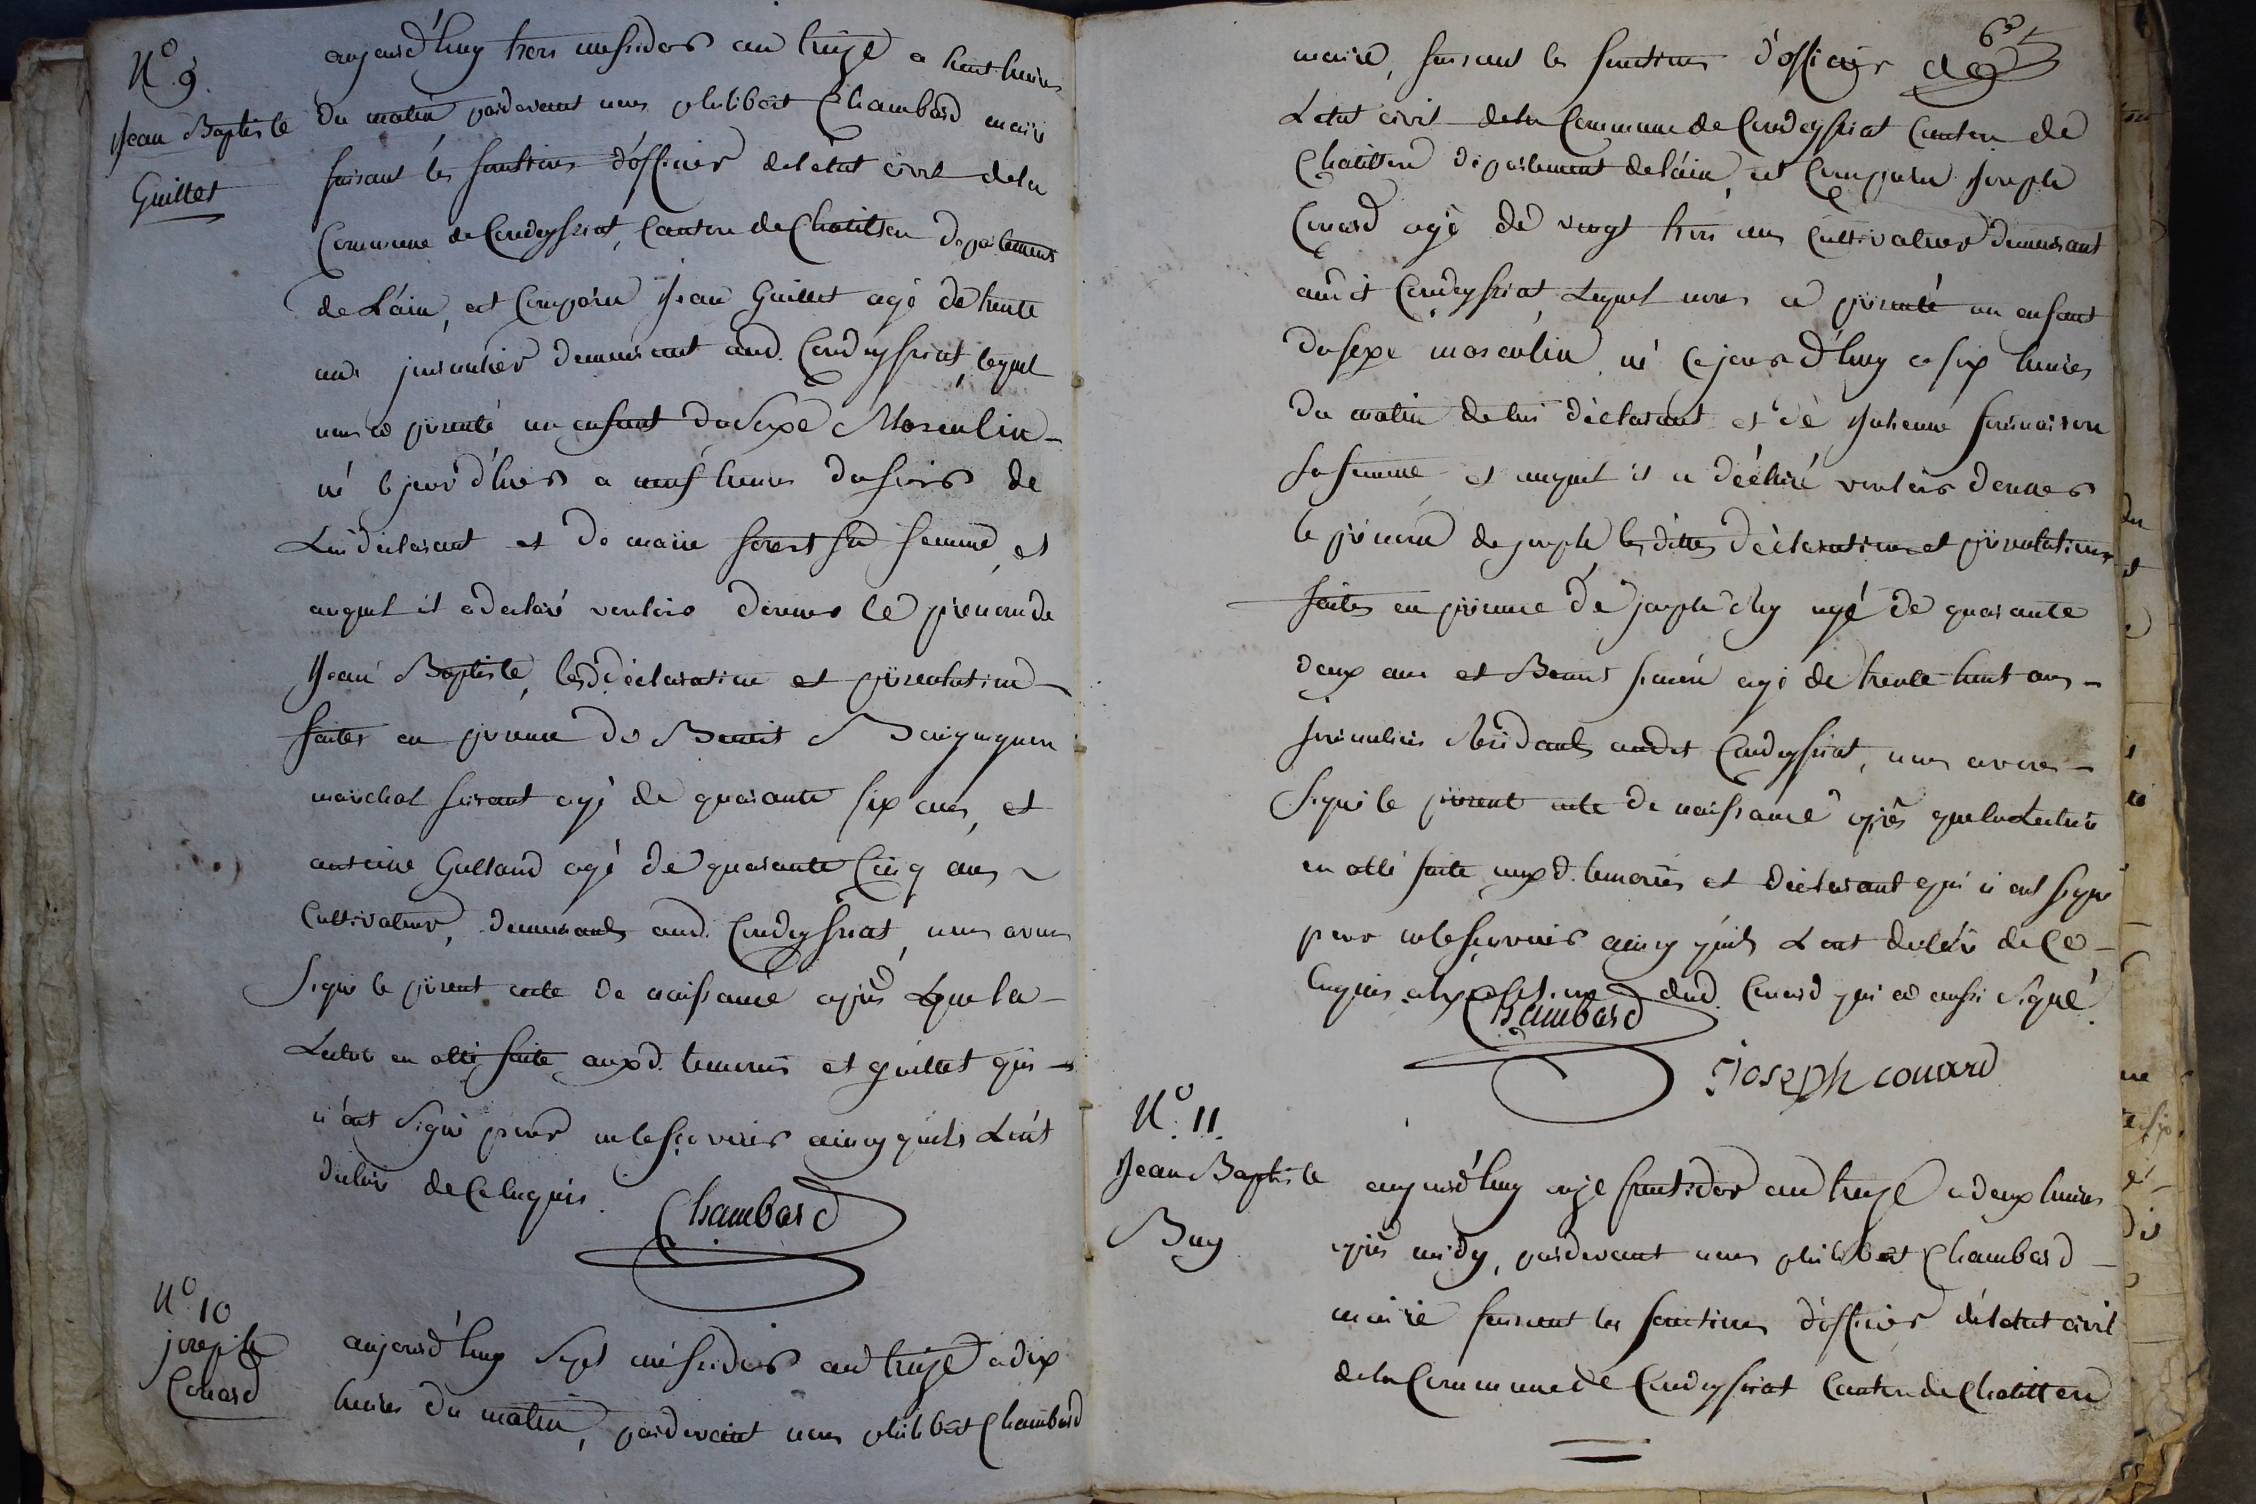 N.o 9.
Jean Baptiste
Guillet
aujourd'huy trois messidor an treize a huit heures
du matin pardevant nous philibert Chambard maire
faisant les fonctions d'officier de l'état civil de la
Commune de Condeyssiat, Canton de Chatillon département
de L'ain, est Comparu Jean Guillet agé de trente
ans journalier demeurant aud. Condeyssiat, lequel
nous a présenté un enfant du Sexe Masculin –
né le jour d'hier a neuf heures du soir de
Lui déclarant et de marie forest sa femme, et
auquel il a déclaré vouloir donner le prénom de
Jean Baptiste, lesd. déclaration et présentation –
faites en présence de Benoit
marechal ferant agé de quarante six ans, et
antoine Galland agé de quarante Cinq ans ~
Cultivateur, demeurants aud. Condeyssiat, nous avons
signé le présent acte de naissance après que la –
Lecture en a été faite auxd. temoins et guillet qui –
n'ont signé pour ne le sçavoir ainsy quils L'ont
déclaré de Ce enquis. Chambard
N.o 10
joseph
Couard
aujourd'huy sept messidor an treize a dix
heures du matin, pardevant nous philibert Chambard
6
maire, faisant les fonctions d'officier de
L'état civil de la Commune de Condeyssiat Canton de
Chatillon département de l'ain, est Comparu Joseph
Couard agé de vingt trois ans Cultivateur demeurant
audit Condeyssiat, Lequel nous a présenté un enfant
du sexe masculin, né Ce jour d'huy a six heures
du matin de lui déclarant et de Julienne
sa femme, et auquel il a déclaré vouloir donner
le prénom de joseph les dittes déclaration et présentation
faites en présence de joseph agé de quarante
deux ans et Benoit agé de trente huit ans –
journaliers Résidants audit Condeyssiat, nous avons –
signé le présent acte de naissance après que la Lecture
en a été faite auxd. temoins et déclarant qui n'ont signé
pour ne le sçavoir ainsy quils L'ont déclaré de Ce –
Enquis a l'exception dud. Couard qui a aussi signé.
Chambard
Joseph couard
N.o 11.
Jean Baptiste
Buy
aujourd'huy onze fructidor an treize a deux heures
après midy, pardevant nous philibert Chambard –
maire faisant les fonctions d'officier de l'état civil
de la Commune de Condeyssiat Canton de Chatillon